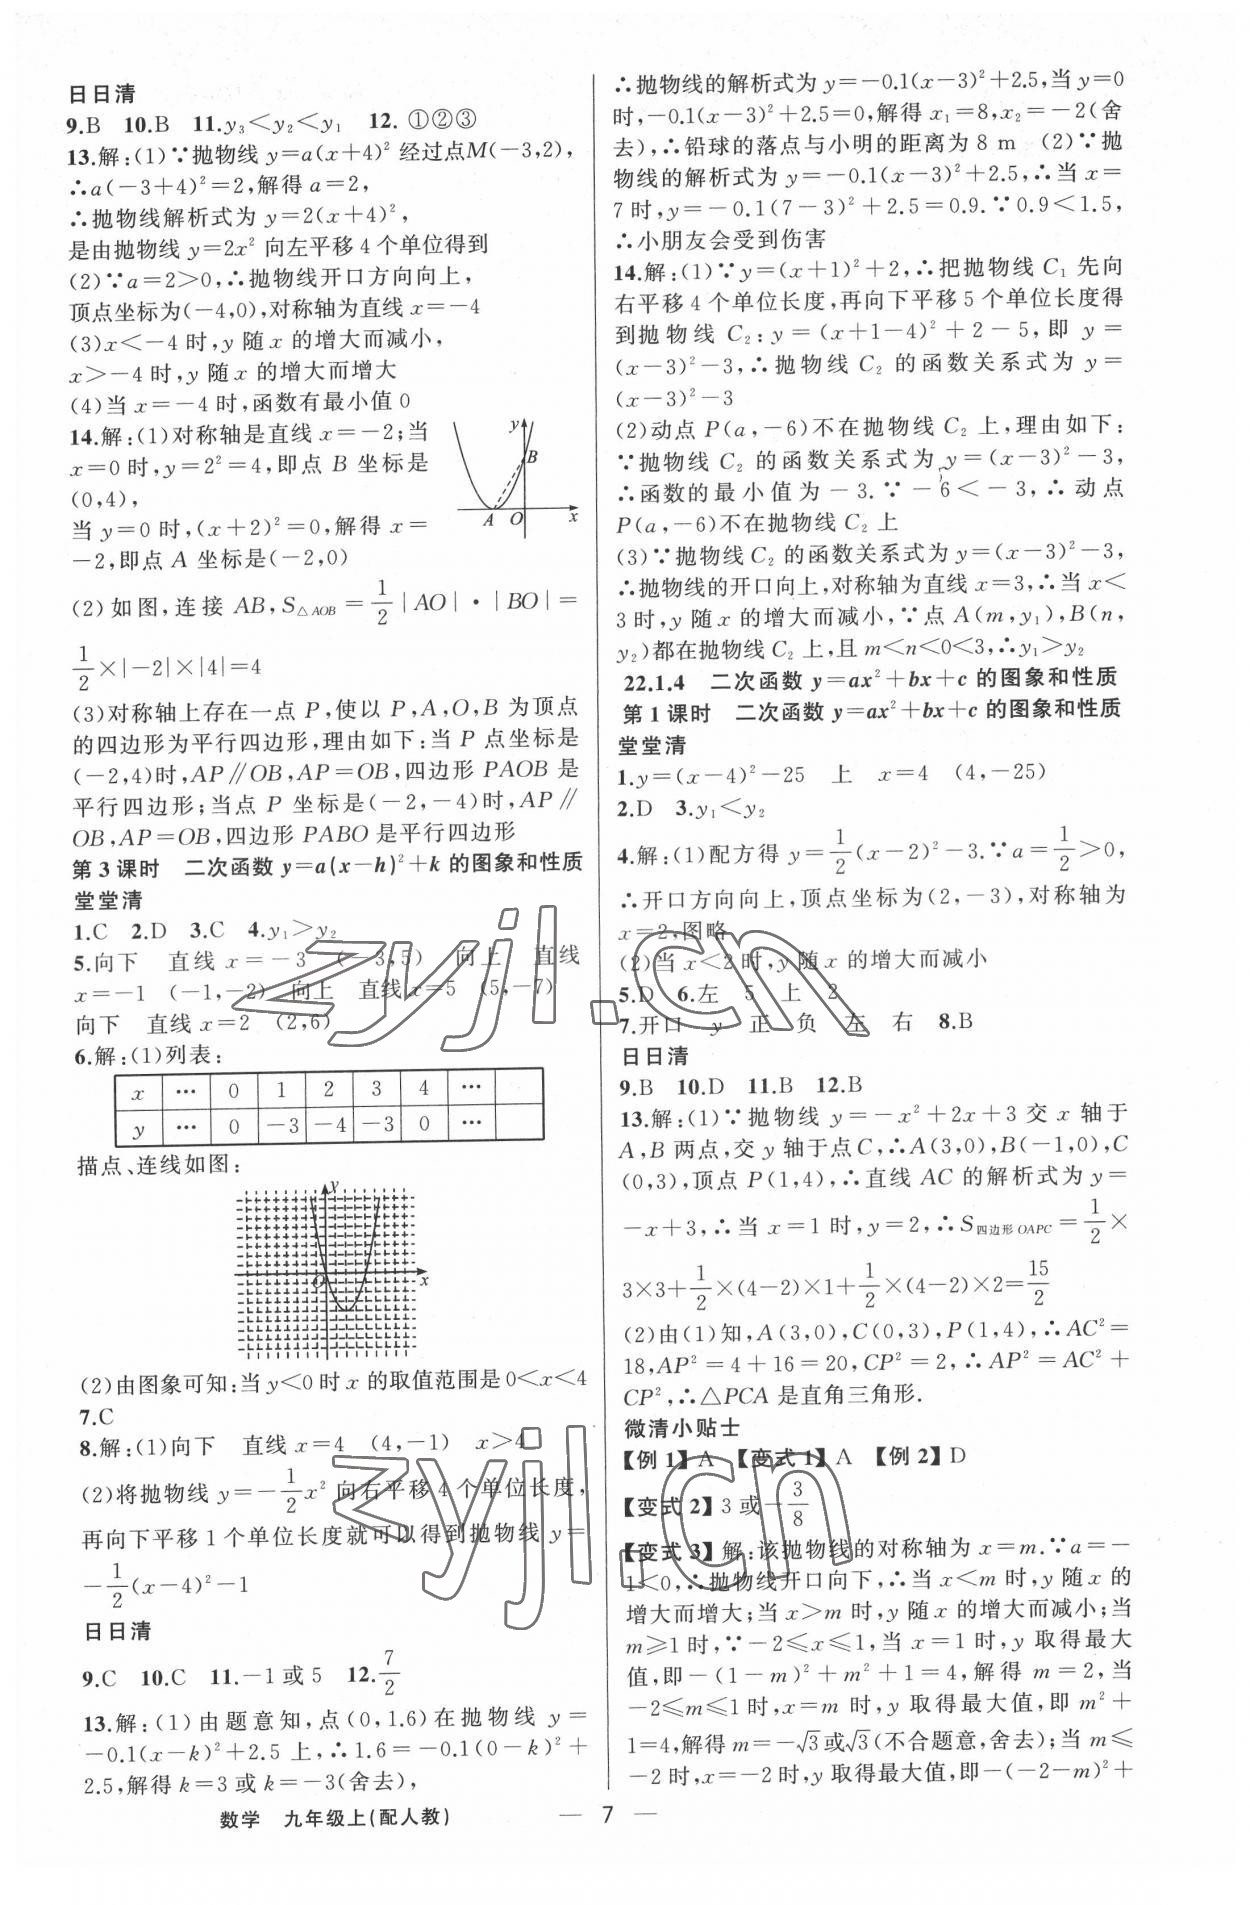 日日清
9.B 10.B 11.y₃＜y₂＜y₁ 12. ①②③
13.解:(1)∵抛物线 y=a(x+4)² 经过点M(-3,2),
∴a(-3+4)²=2,解得 a=2,
∴抛物线解析式为 y=2(x+4)²,
是由抛物线 y=2x² 向左平移 4 个单位得到
(2)∵a=2>0,∴抛物线开口方向向上,
顶点坐标为(-4,0),对称轴为直线 x=-4
(3)x<-4 时,y 随 x 的增大而减小,
x>-4 时,y 随 x 的增大而增大
(4)当 x=-4 时,函数有最小值 0
14.解:(1)对称轴是直线 x=-2;当
x=0 时,y=2²=4,即点 B 坐标是
(0,4),
当 y=0 时,(x+2)²=0,解得 x=
-2,即点 A 坐标是(-2,0)
y
B
A O x
(2)如图,连接 AB,S△AOB=1/2|AO|·|BO|=
1/2×|-2|×|4|=4
(3)对称轴上存在一点 P,使以 P,A,O,B 为顶点
的四边形为平行四边形,理由如下:当 P 点坐标是
(-2,4)时,AP∥OB,AP=OB,四边形 PAOB 是
平行四边形;当点 P 坐标是(-2,-4)时,AP∥
OB,AP=OB,四边形 PABO 是平行四边形
第 3 课时 二次函数 y=a(x-h)²+k 的图象和性质
堂堂清
1.C 2.D 3.C 4.y₁>y₂
5.向下 直线 x=-3 (-3,5) 向上 直线
x=-1 (-1,-2) 向上 直线 x=5 (5,-7)
向下 直线 x=2 (2,6)
6.解:(1)列表:
x … 0 1 2 3 4 …
y … 0 -3 -4 -3 0 …
描点、连线如图:
y
O x
(2)由图象可知:当 y<0 时 x 的取值范围是 0<x<4
7.C
8.解:(1)向下 直线 x=4 (4,-1) x>4
(2)将抛物线 y=-1/2x² 向右平移 4 个单位长度,
再向下平移 1 个单位长度就可以得到抛物线 y=
-1/2(x-4)²-1
日日清
9.C 10.C 11.-1 或 5 12.7/2
13.解:(1)由题意知,点(0,1.6)在抛物线 y=
-0.1(x-k)²+2.5 上,∴1.6=-0.1(0-k)²+
2.5,解得 k=3 或 k=-3(舍去),
∴抛物线的解析式为 y=-0.1(x-3)²+2.5,当 y=0
时,-0.1(x-3)²+2.5=0,解得 x₁=8,x₂=-2(舍
去),∴铅球的落点与小明的距离为 8 m (2)∵抛
物线的解析式为 y=-0.1(x-3)²+2.5,∴当 x=
7 时,y=-0.1(7-3)²+2.5=0.9.∵0.9<1.5,
∴小朋友会受到伤害
14.解:(1)∵y=(x+1)²+2,∴把抛物线 C₁ 先向
右平移 4 个单位长度,再向下平移 5 个单位长度得
到抛物线 C₂:y=(x+1-4)²+2-5,即 y=
(x-3)²-3,∴抛物线 C₂ 的函数关系式为 y=
(x-3)²-3
(2)动点 P(a,-6)不在抛物线 C₂ 上,理由如下:
∵抛物线 C₂ 的函数关系式为 y=(x-3)²-3,
∴函数的最小值为-3.∵-6<-3,∴动点
P(a,-6)不在抛物线 C₂ 上
(3)∵抛物线 C₂ 的函数关系式为 y=(x-3)²-3,
∴抛物线的开口向上,对称轴为直线 x=3,∴当 x<
3 时,y 随 x 的增大而减小,∵点 A(m,y₁),B(n,
y₂)都在抛物线 C₂ 上,且 m<n<0<3,∴y₁>y₂
22.1.4 二次函数 y=ax²+bx+c 的图象和性质
第 1 课时 二次函数 y=ax²+bx+c 的图象和性质
堂堂清
1.y=(x-4)²-25 上 x=4 (4,-25)
2.D 3.y₁<y₂
4.解:(1)配方得 y=1/2(x-2)²-3.∵a=1/2>0,
∴开口方向向上,顶点坐标为(2,-3),对称轴为
x=2,图略
(2)当 x<2 时,y 随 x 的增大而减小
5.D 6.左 5 上 2
7.开口 y 正 负 左 右 8.B
日日清
9.B 10.D 11.B 12.B
13.解:(1)∵抛物线 y=-x²+2x+3 交 x 轴于
A,B 两点,交 y 轴于点 C,∴A(3,0),B(-1,0),C
(0,3),顶点 P(1,4),∴直线 AC 的解析式为 y=
-x+3,∴当 x=1 时,y=2,∴S四边形OAPC=1/2×
3×3+1/2×(4-2)×1+1/2×(4-2)×2=15/2
(2)由(1)知,A(3,0),C(0,3),P(1,4),∴AC²=
18,AP²=4+16=20,CP²=2,∴AP²=AC²+
CP²,∴△PCA 是直角三角形.
微清小贴士
【例 1】A 【变式 1】A 【例 2】D
【变式 2】3 或-3/8
【变式 3】解:该抛物线的对称轴为 x=m.∵a=-
1<0,∴抛物线开口向下,∴当 x<m 时,y 随 x 的
增大而增大;当 x>m 时,y 随 x 的增大而减小;当
m≥1 时,∵-2≤x≤1,当 x=1 时,y 取得最大
值,即-(1-m)²+m²+1=4,解得 m=2,当
-2≤m≤1 时,x=m 时,y 取得最大值,即 m²+
1=4,解得 m=-√3或√3(不合题意,舍去);当 m≤
-2 时,x=-2 时,y 取得最大值,即-(-2-m)²+
数学 九年级上(配人教)
— 7 —
zyjl.cn
zyjl.cn